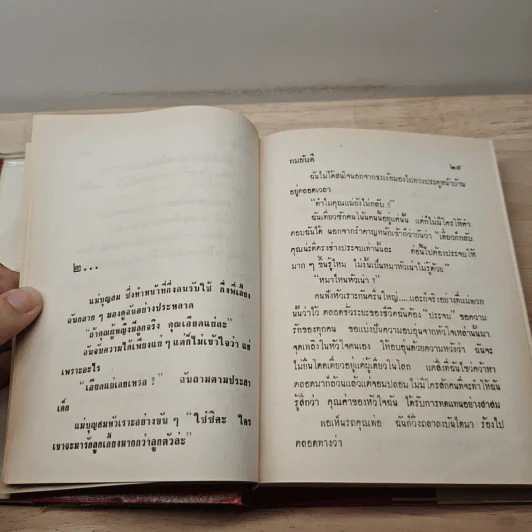 ๒...
แม่บุญสม ซึ่งทำหน้าที่กึ่งคนรับใช้ กึ่งพี่เลี้ยง
ฉันกลาย ๆ มองดูฉันอย่างประหลาด
"ถ้าคุณผู้หญิงมีลูกจริง คุณเอียดแย่ละ"
ฉันจับความได้เพียงแย่ ๆ แต่ก็ไม่เข้าใจว่า แย่
เพราะอะไร
"เอียดแย่เลยเหรอ ?" ฉันถามตามประสา
เด็ก
แม่บุญสมหัวเราะอย่างขัน ๆ "ใช่ซิคะ ใคร
เขาจะมารักลูกเลี้ยงมากกว่าลูกตัวล่ะ"
ทมยันตี
๒๙
ฉันไม่ได้สนใจนอกจากชะเง้อมองไปทางประตูหน้าบ้าน
อยู่ตลอดเวลา
"ทำไมคุณแม่ยังไม่กลับ ?"
ฉันเที่ยวซักคนโน้นคนนี้อยู่แค่นั้น แต่ก็ไม่มีใครให้คำ
ตอบฉันได้ นอกจากรำคาญหนักเข้าก็ว่ากันว่า "เดี๋ยวก็กลับ
คุณน่ะดีตรงช่างประจบเท่านั้นละ ต่อนี้ไปต้องประจบให้
มาก ๆ ขึ้นรู้ไหม ไม่งั้นเป็นหมาหัวเน่าไม่รู้ด้วย"
"หมาไหนหัวเน่า ?"
คนฟังหัวเราะกันครืนใหญ่.....และก็จริงอย่างที่แม่พวก
นั้นว่าไว้ ตลอดชั่วระยะของชีวิตฉันต้อง "ประจบ" ขอความ
รักของทุกคน ขอแบ่งปันความอบอุ่นจากหัวใจเหล่านั้นมา
จุดเพลิงในหัวใจคนเอง ให้อบอุ่นด้วยความหวังว่า ฉันจะ
ไม่ยืนโดดเดี่ยวอยู่แต่ผู้เดียวในโลก แต่สิ่งที่ฉันไขว่คว้าหา
ตลอดมาก็ล้วนแล้วแต่จอมปลอม ไม่มีใครสักคนที่จะทำให้ฉัน
รู้สึกว่า คุณค่าของหัวใจฉัน ได้รับการทดแทนอย่างสาสม
พอเห็นรถคุณพ่อ ฉันก็วิ่งถลาลงบันไดมา ร้องไป
ตลอดทางว่า